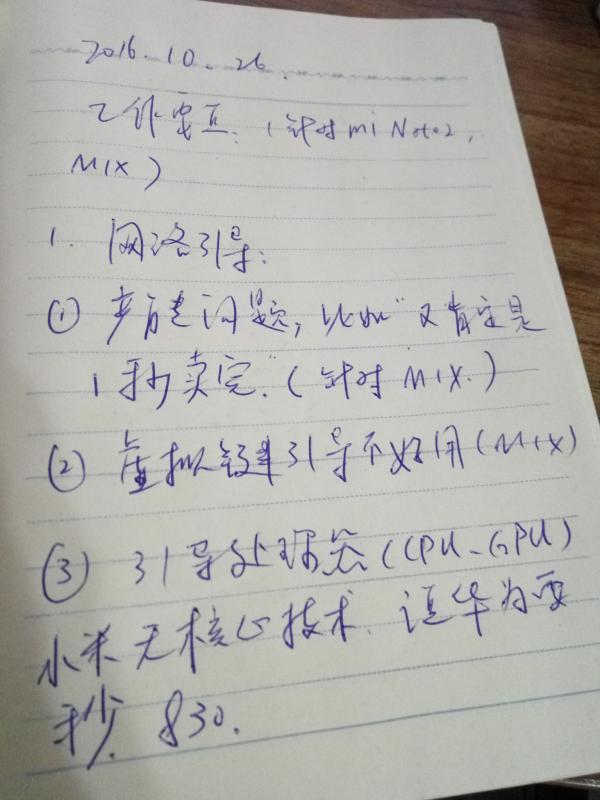 2016.10.26.
工作要点.（针对mi Note2,
MIX）
1. 网络引导:
① 产能问题, 比如"又肯定是
1秒卖完."(针对MIX.)
② 虚拟 引导不好用(MIX)
③ 引导处理器(CPU、GPU)
小米无核心技术. 华为要
秒. 830.